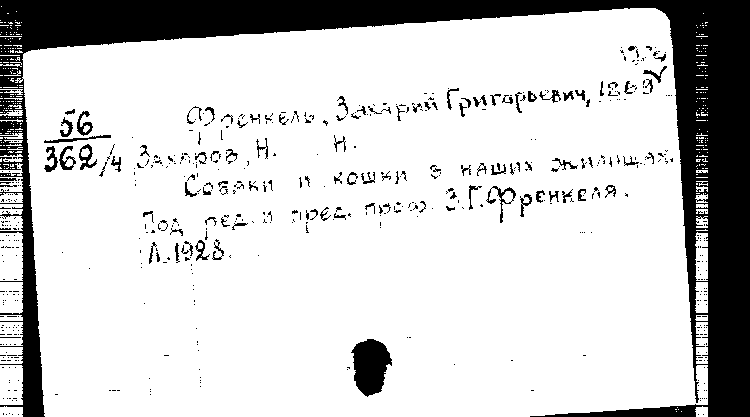 56
362/4
Френкель, Захарий Григорьевич, 1869
Захаров, Н. Н.
Собаки и кошки в наших жилищах.
Под ред. и пред. проф. З.Г.Френкеля.
Л.1928.